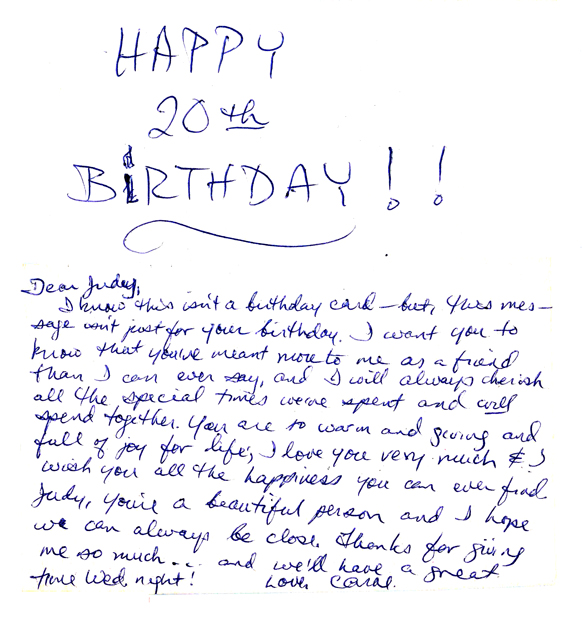 HAPPY
20th
BIRTHDAY!!
Dear Judy,
I know this isn't a birthday card – but, this mes–
sage isn't just for your birthday. I want you to
know that you've meant more to me as a friend
than I can ever say, and I will always cherish
all the special times we've spent and will
spend together. You are so warm and giving and
full of joy for life; I love you very much & I
wish you all the happiness you can ever find.
Judy, you're a beautiful person and I hope
we can always be close. Thanks for giving
me so much... and we'll have a great
time Wed. night! Love, Carol.